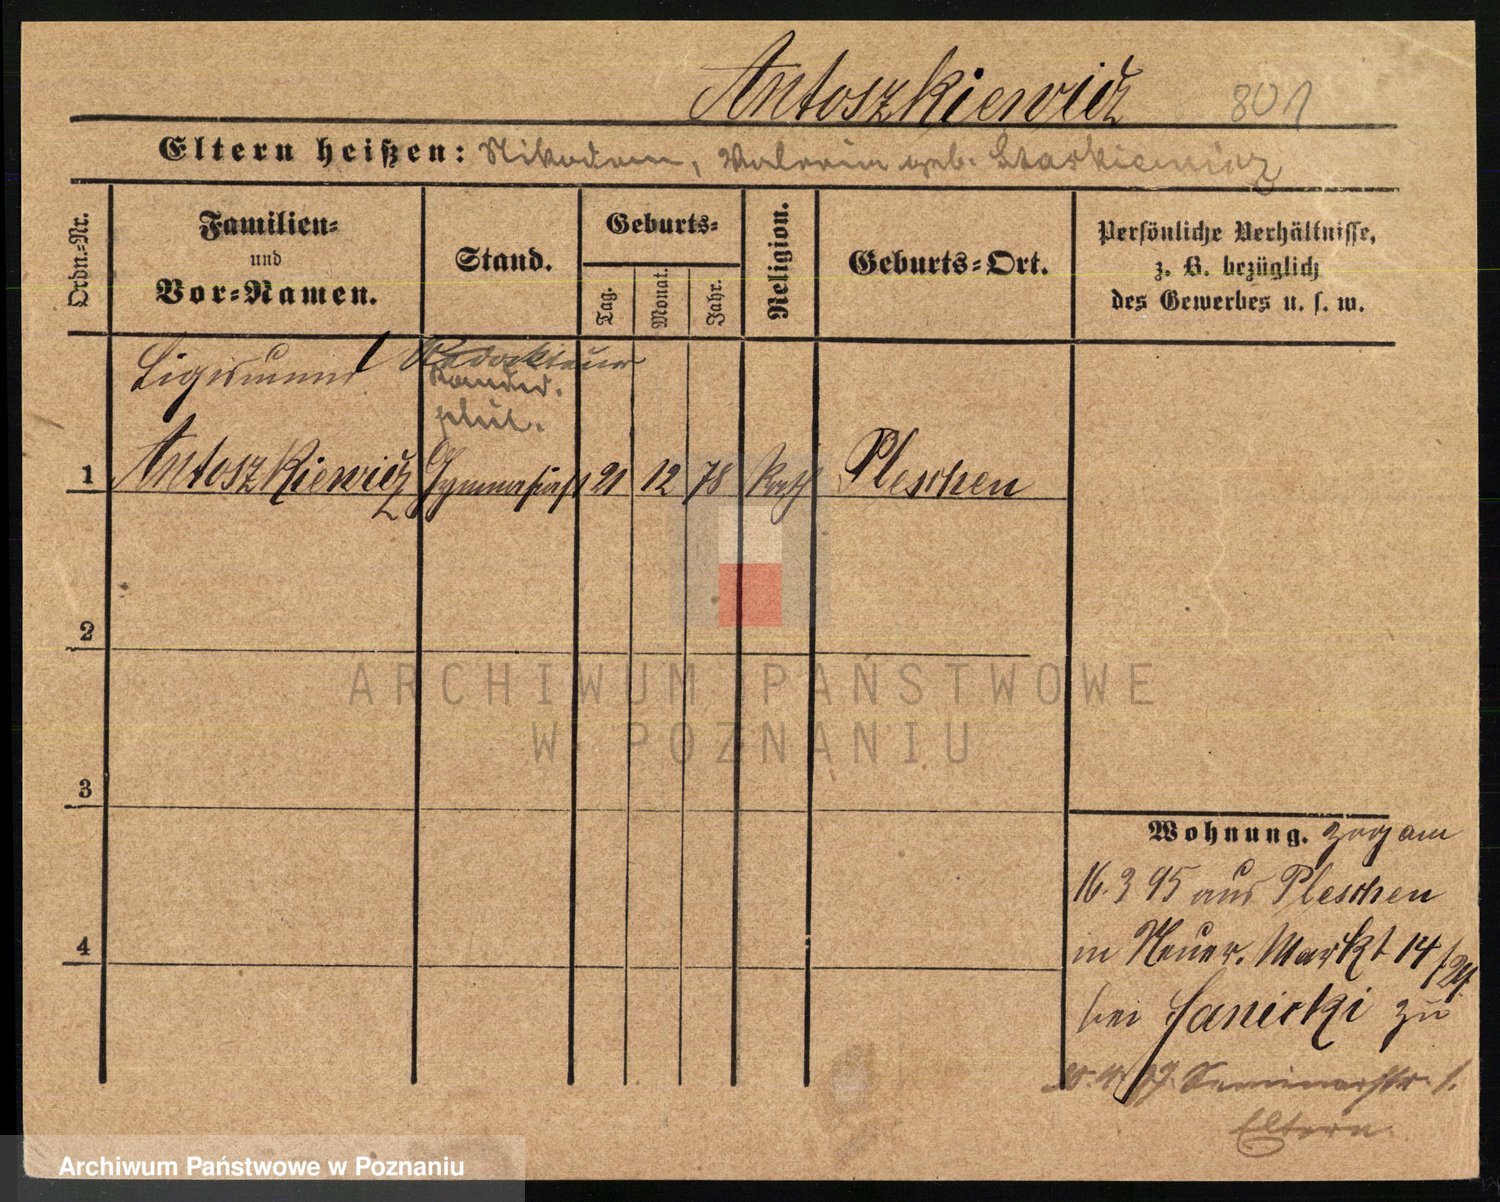 Antoszkiewicz 801
Eltern heißen: Nikodem, Valeria geb. Starkiewicz
Ordn.-Nr.
Familien-
und
Vor-Namen.
Stand.
Geburts-
Tag.
Monat.
Jahr.
Religion.
Geburts-Ort.
Persönliche Verhältnisse,
z. B. bezüglich
des Gewerbes u. s. w.
Sigismund Redakteur
Kandid.
phil.
1 Antoszkiewicz Gymnasiast 21 12 78 kath Pleschen
2
3
4
Wohnung. zog am
16.3 95 aus Pleschen
in Neuer. Markt 14
bei Janicki zu
Seminarstr. 1.
Eltern
ARCHIWUM PAŃSTWOWE
W POZNANIU
Archiwum Państwowe w Poznaniu